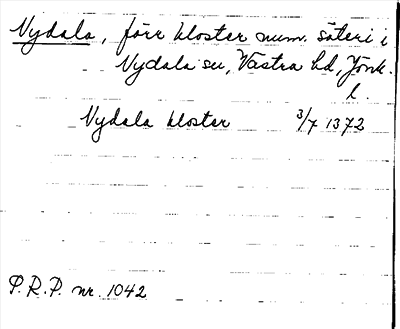 Nydala, förr kloster num. säteri i
Nydala sn, Västra hd, Jönk.
l.
Nydala kloster 3/7 1372
P.R.P. nr. 1042